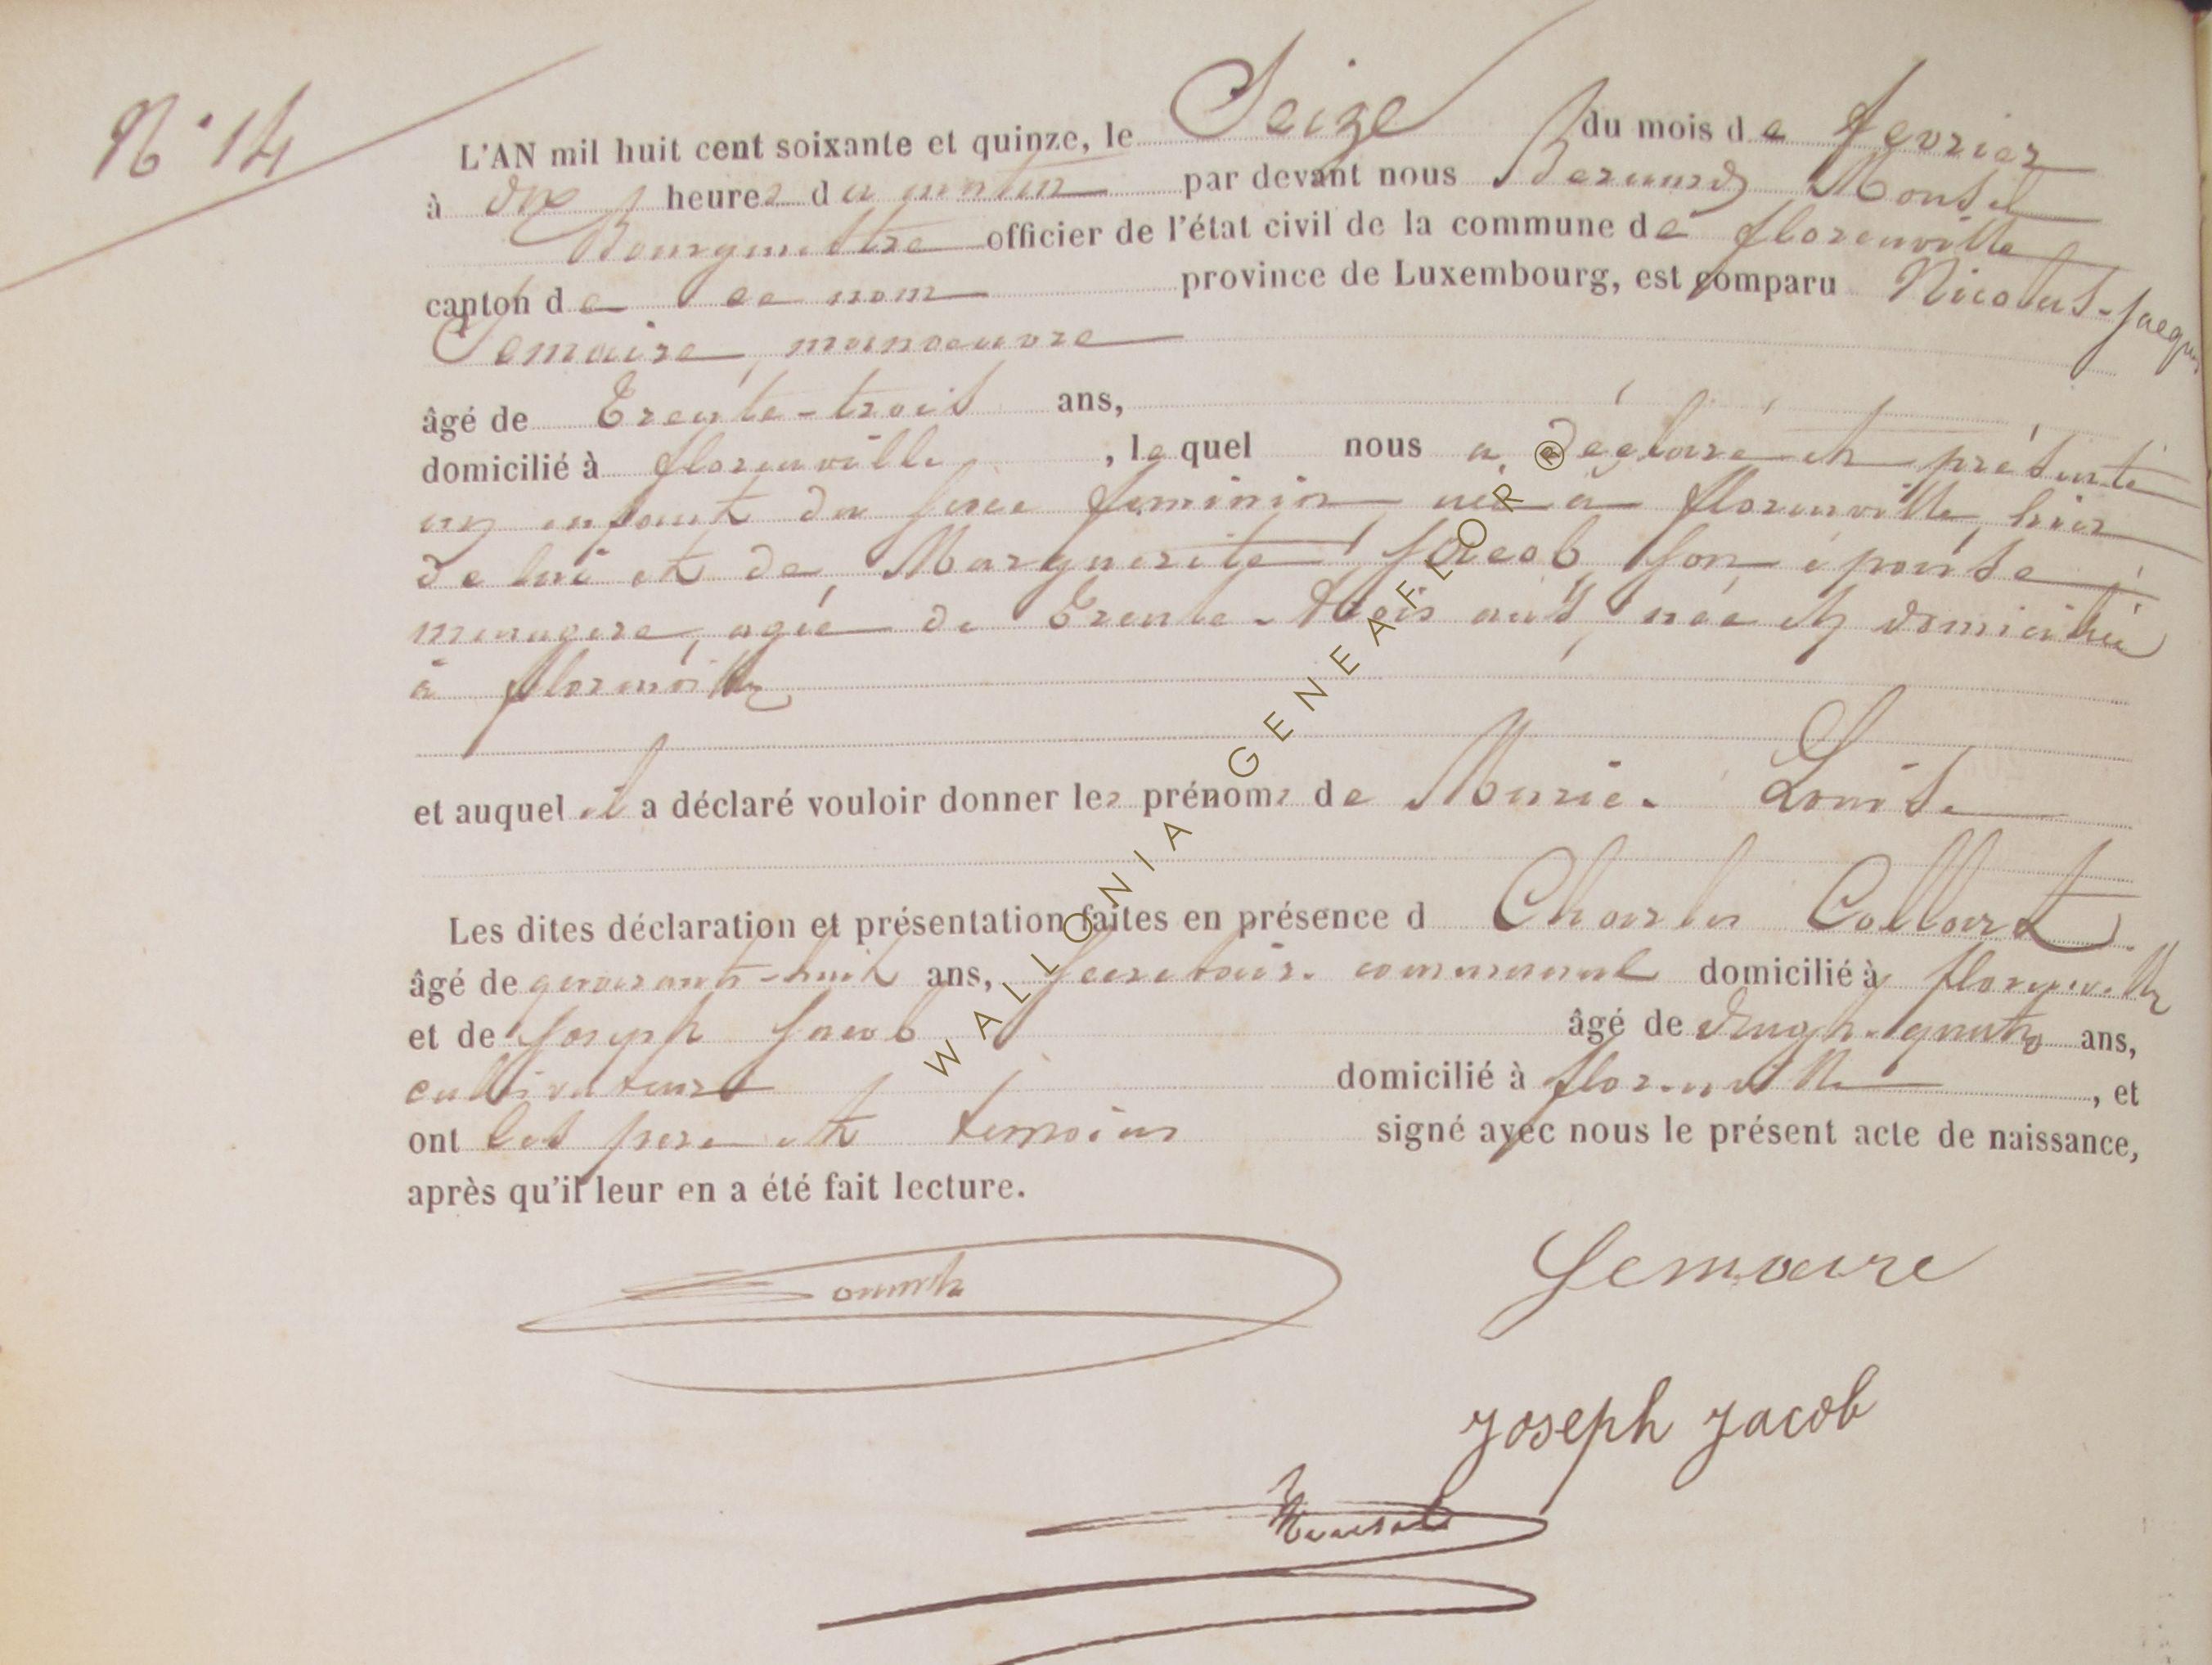 N° 14
L'AN mil huit cent soixante et quinze, le Seize du mois de fevrier
à dix heures du matin par devant nous Bernard Monsel
Bourgmestre officier de l'état civil de la commune de florenville
canton de ce nom province de Luxembourg, est comparu Nicolas-Jacques
Lemaire, manoeuvre
âgé de Trente-trois ans,
domicilié à florenville, lequel nous a déclaré et présenté
un enfant du sexe feminin née à florenville, hier
de lui et de Marguerite Jacob son épouse
menagere, agée de Trente-trois ans, née et domiciliée
à florenville
et auquel il a déclaré vouloir donner les prénoms de Marie-Louise
Les dites déclaration et présentation faites en présence d Charles Collart
âgé de quarante-huit ans, secretaire communal domicilié à florenville
et de Joseph Jacob âgé de vingt-quatre ans,
cultivateur domicilié à florenville, et
ont les pere et temoins signé avec nous le présent acte de naissance,
après qu'il leur en a été fait lecture.
Lemaire
Joseph Jacob
Monsel
WALLONIA GENEAFLOR ®